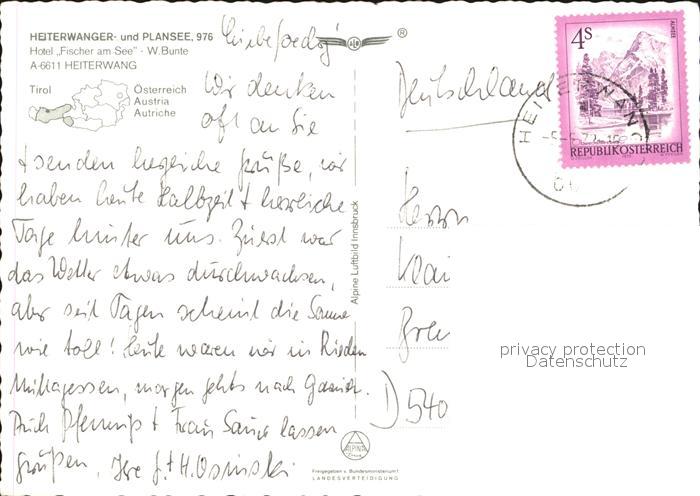 HEITERWANGER- und PLANSEE, 976
Hotel „Fischer am See" - W. Bunte
A-6611 HEITERWANG
Tirol
Österreich
Austria
Autriche
®
4s
ALMSEE
REPUBLIK ÖSTERREICH
HEITERWANG
Wir denken
oft an Sie
+ senden herzliche Grüße, wir
haben heute Halbzeit + herrliche
Tage hinter uns. Zuerst war
das Wetter etwas durchwachsen,
aber seit Tagen scheint die Sonne
wie toll! Heute waren wir in Rieden
Mittagessen, morgen gehts nach
Auch + Frau lassen
grüßen, Ihre
Alpine Luftbild Innsbruck
Deutschland
Herrn
Kai
D 540
privacy protection
Datenschutz
ALPINE
Freigegeben v. Bundesministerium f.
LANDESVERTEIDIGUNG